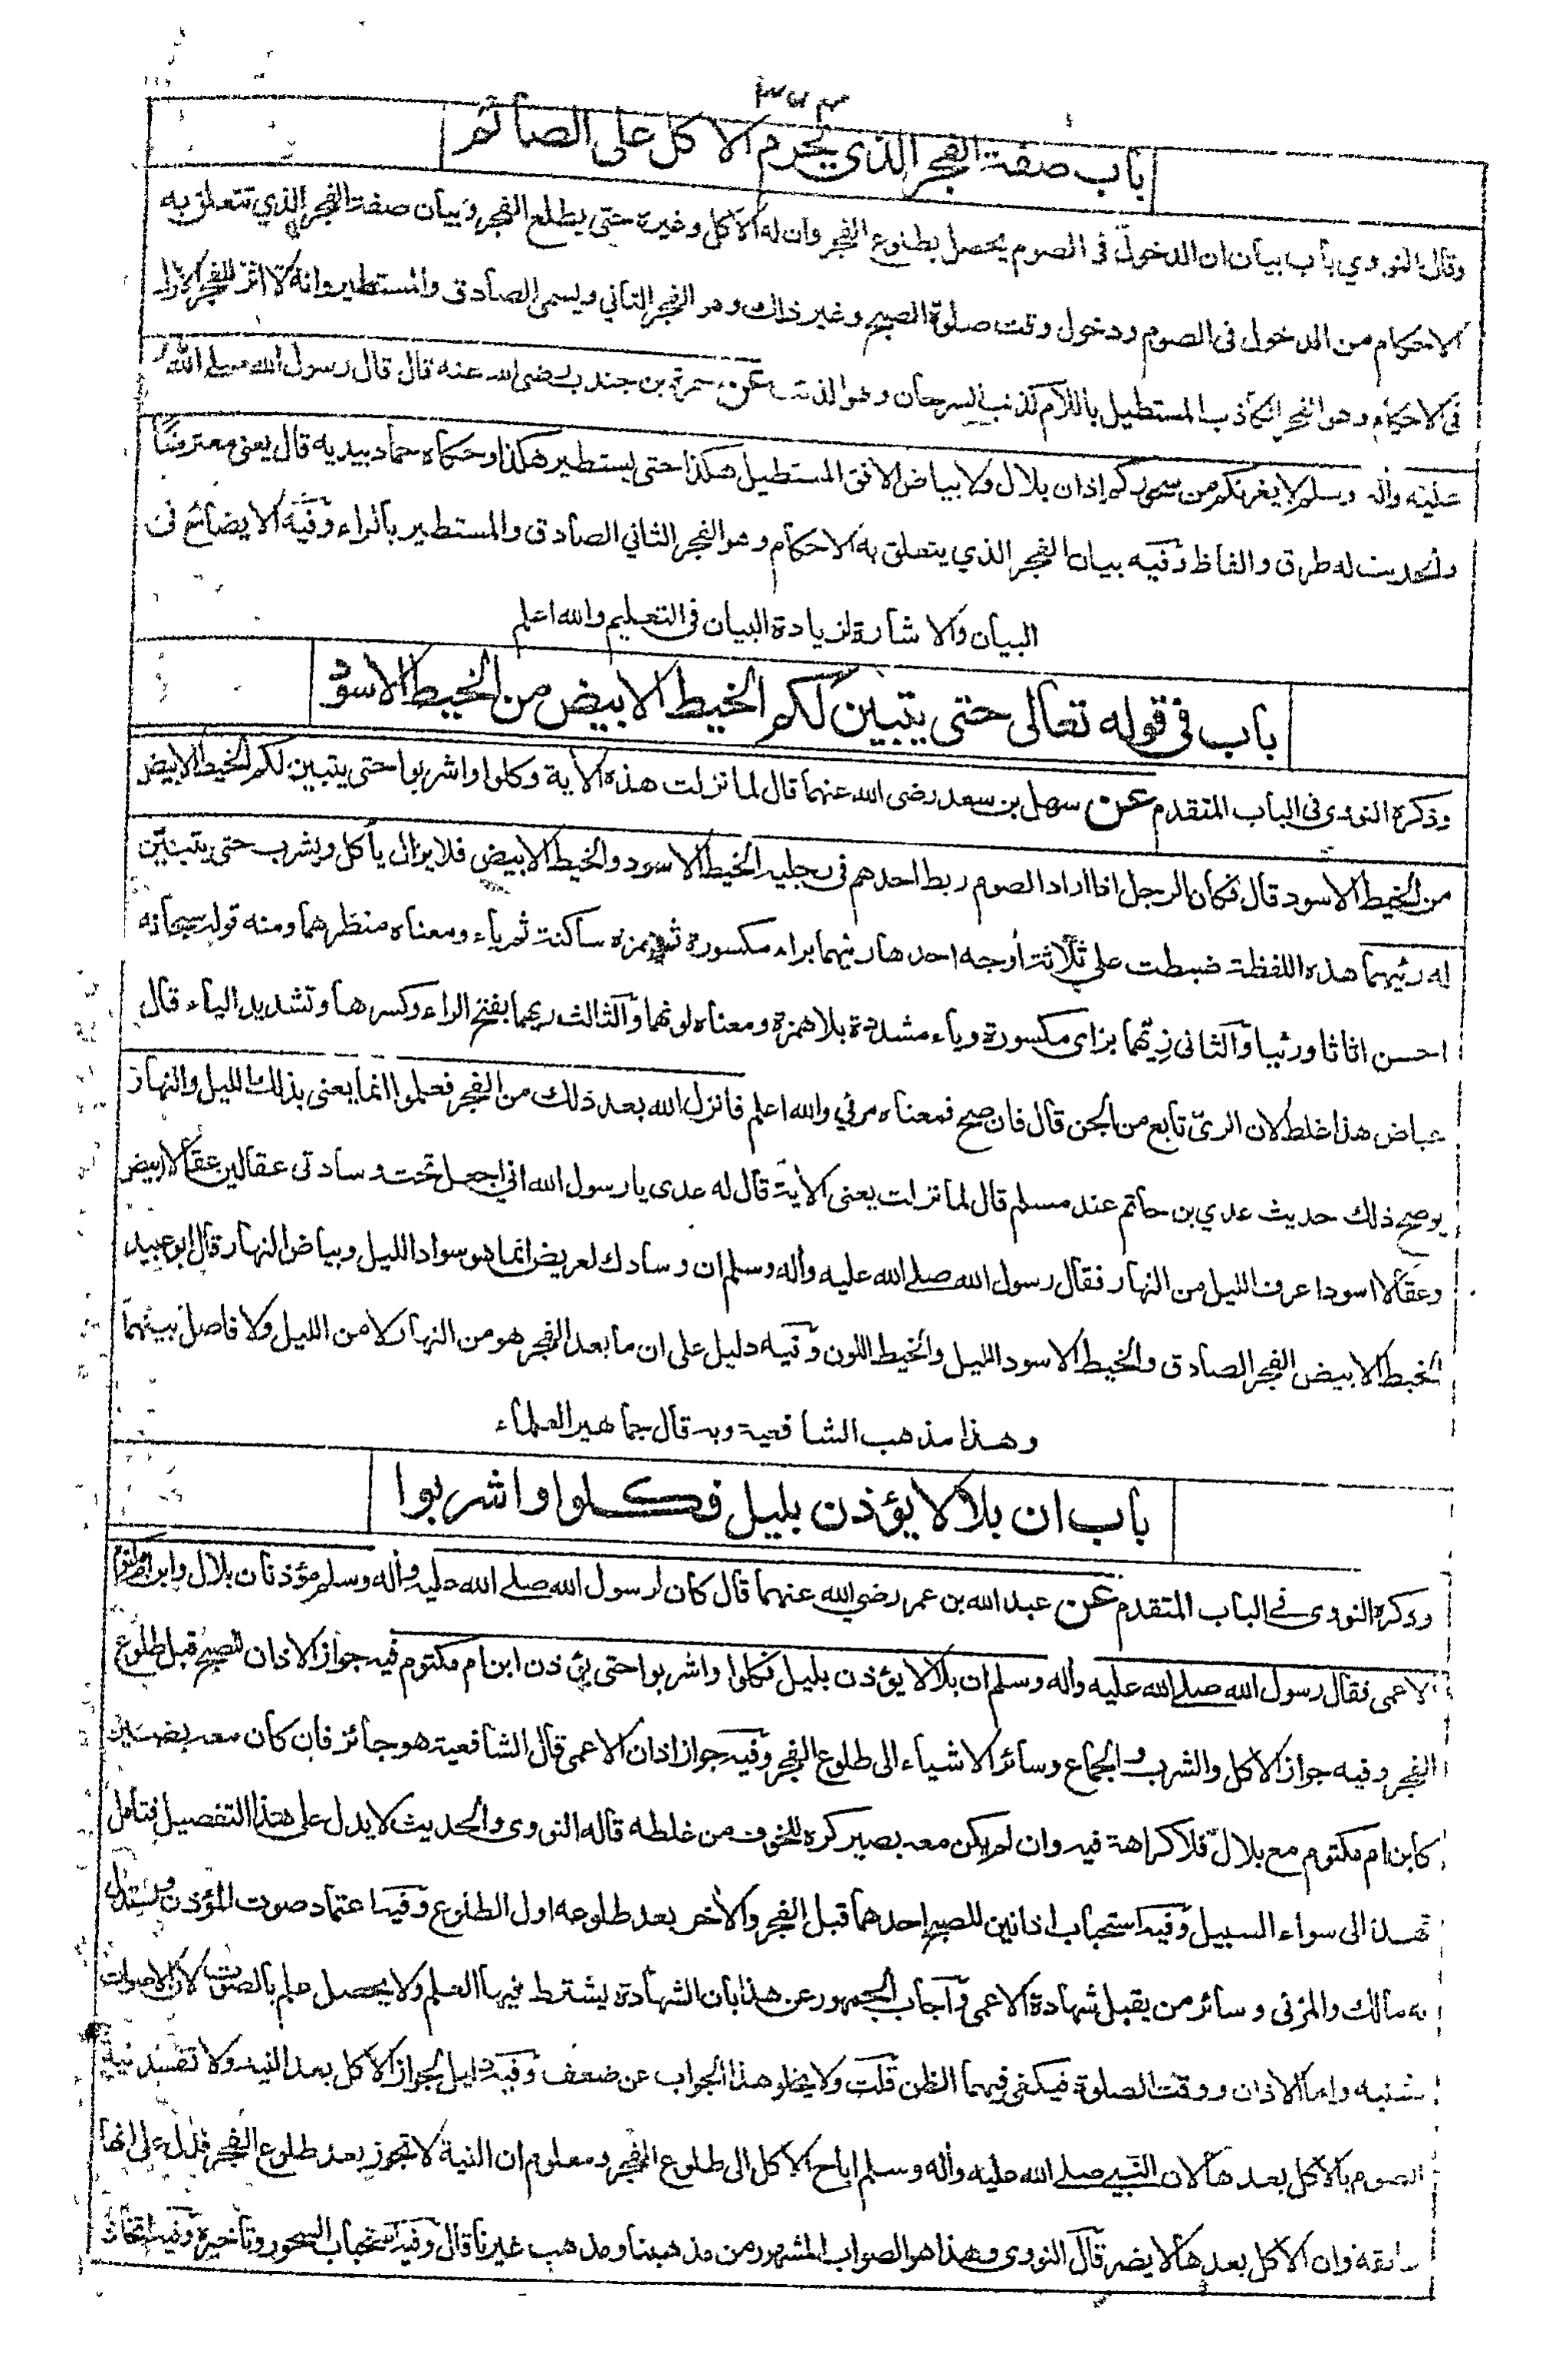 ٣٧٣
باب صفة الفجر الذي يحرم الاكل على الصائم
وقال النووي باب بيان ان الدخول فى الصوم يحصل بطلوع الفجر وان له الاكل وغيره حتى يطلع الفجر وبيان صفة الفجر الذي تتعلق به
الاحكام من الدخول فى الصوم ودخول وقت صلوة الصبح وغير ذلك وهو الفجر الثاني ويسمى الصادق والمستطير وانه لا اثر للفجر الاول
فى الاحكام وهو الفجر الكاذب المستطيل باللام كذنب السرحان وهو الذئب عن سمرة بن جندب رضى الله عنه قال قال رسول الله صلى الله
عليه واله وسلم لا يغرنكم من سحوركم اذان بلال ولا بياض الافق المستطيل هكذا حتى يستطير هكذا وحكاه حماد بيديه قال يعنى معترضًا
والحديث له طرق والفاظ وفيه بيان الفجر الذي يتعلق به الاحكام وهو الفجر الثاني الصادق والمستطير بالراء وفيه الايضاح فى
البيان والاشارة لزيادة البيان فى التعليم والله اعلم
باب فى قوله تعالى حتى يتبين لكم الخيط الابيض من الخيط الاسود
وذكره النووى فى الباب المتقدم عن سهل بن سعد رضى الله عنهما قال لما نزلت هذه الاية وكلوا واشربوا حتى يتبين لكم الخيط الابيض
من الخيط الاسود قال فكان الرجل اذا اراد الصوم ربط احدهم فى رجليه الخيط الاسود والخيط الابيض فلا يزال يأكل ويشرب حتى يتبيّن
له رئيهما هذه اللفظة ضبطت على ثلاثة أوجه احدها رئيهما براء مكسورة ثم همزة ساكنة ثم ياء ومعناه منظرهما ومنه قوله سبحانه
احسن اثاثا ورئيا والثانى زيّهما بزاى مكسورة وياء مشددة بلا همزة ومعناه لونهما والثالث ريهما بفتح الراء وكسرها وتشديد الياء قال
عياض هذا غلط لان الريّ تابع من الجن قال فان صح فمعناه مرئي والله اعلم فانزل الله بعد ذلك من الفجر فعلموا انما يعنى بذلك الليل والنهار
يوضح ذلك حديث عدي بن حاتم عند مسلم قال لما نزلت يعنى الاية قال له عدى يا رسول الله اني اجعل تحت وسادتى عقالين عقالا ابيض
وعقالا اسود اعرف الليل من النهار فقال رسول الله صلى الله عليه واله وسلم ان وسادك لعريض انما هو سواد الليل وبياض النهار قال ابو عبيد
الخيط الابيض الفجر الصادق والخيط الاسود الليل والخيط اللون وفيه دليل على ان ما بعد الفجر هو من النهار لا من الليل ولا فاصل بينهما
وهذا مذهب الشافعية وبه قال جماهير العلماء
باب ان بلالا يؤذن بليل فكلوا واشربوا
وذكره النووى في الباب المتقدم عن عبد الله بن عمر رضي الله عنهما قال كان لرسول الله صلى الله عليه واله وسلم مؤذنان بلال وابن ام مكتوم
الاعمى فقال رسول الله صلى الله عليه واله وسلم ان بلالا يؤذن بليل فكلوا واشربوا حتى يؤذن ابن ام مكتوم فيه جواز الاذان للصبح قبل طلوع
الفجر وفيه جواز الاكل والشرب والجماع وسائر الاشياء الى طلوع الفجر وفيه جواز اذان الاعمى قال الشافعية هو جائز فان كان معه بصير
كابن ام مكتوم مع بلال فلا كراهة فيه وان لم يكن معه بصير كره للخوف من غلطه قاله النووى والحديث لا يدل على هذا التفصيل فتامل
تهد الى سواء السبيل وفيه استحباب اذانين للصبح احدهما قبل الفجر والأخر بعد طلوعه اول الطلوع وفيه اعتماد صوت المؤذن واستدل
به مالك والمزنى وسائر من يقبل شهادة الاعمى واجاب الجمهور عن هذا بان الشهادة يشترط فيها العلم ولا يحصل علم بالصوت لان الاصوات
تشتبه واما الاذان ووقت الصلوة فيكفى فيهما الظن قلت ولا يخلو هذا الجواب عن ضعف وفيه دليل لجواز الاكل بعد النية ولا تفسد نية
الصوم بالاكل بعدها لان النبي صلى الله عليه واله وسلم اباح الاكل الى طلوع الفجر ومعلوم ان النية لا تجوز بعد طلوع الفجر فدل على انها
سابقة وان الاكل بعدها لا يضر قال النووى وهذا هو الصواب المشهور من مذهبنا ومذهب غيرنا قال وفيه استحباب السحور وتأخيره وفيه اتخاذ